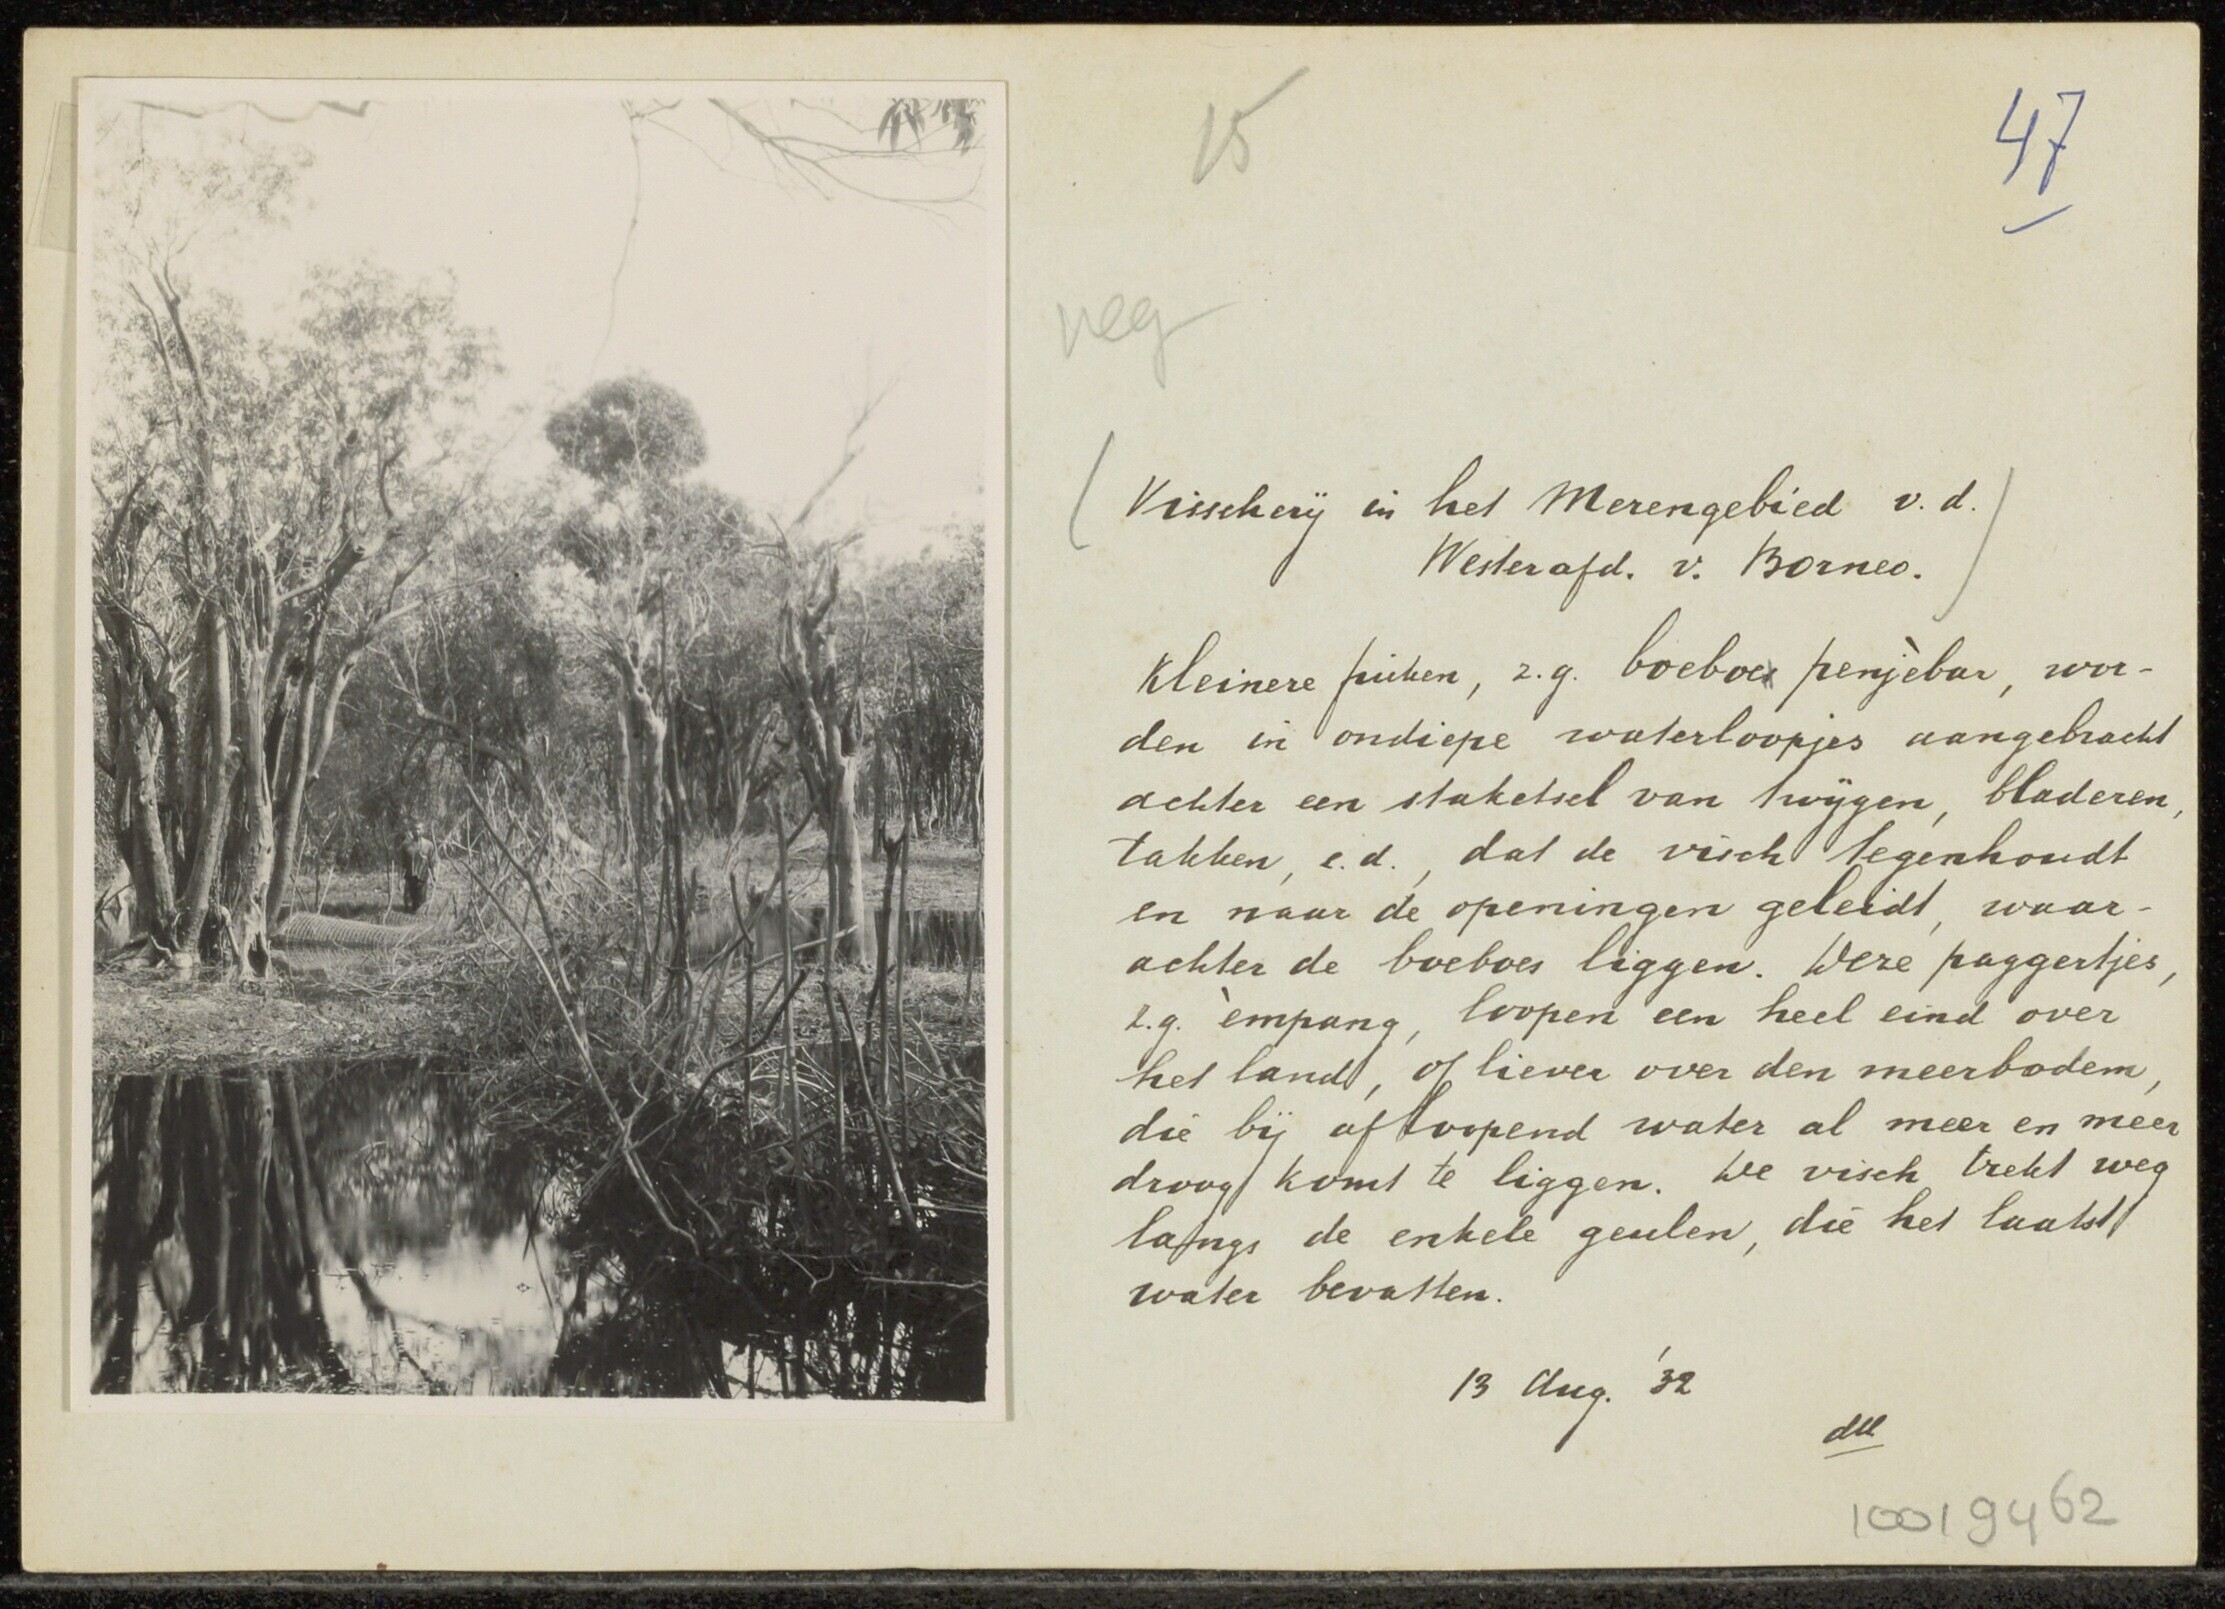 15
47
neg
(Visscherij in het Merengebied v.d.
Westerafd. v. Borneo.)
Kleinere fuiken, z.g. boeboe penjèbar, wor-
den in ondiepe waterloopjes aangebracht
achter een staketsel van twijgen, bladeren,
takken, e.d., dat de visch tegenhoudt
en naar de openingen geleidt, waar-
achter de boeboes liggen. Deze paggertjes,
z.g. èmpang, loopen een heel eind over
het land, of liever over den meerbodem,
die bij afloopend water al meer en meer
droog komt te liggen. De visch trekt weg
langs de enkele geulen, die het laatst
water bevatten.
13 Aug. '32
10019462